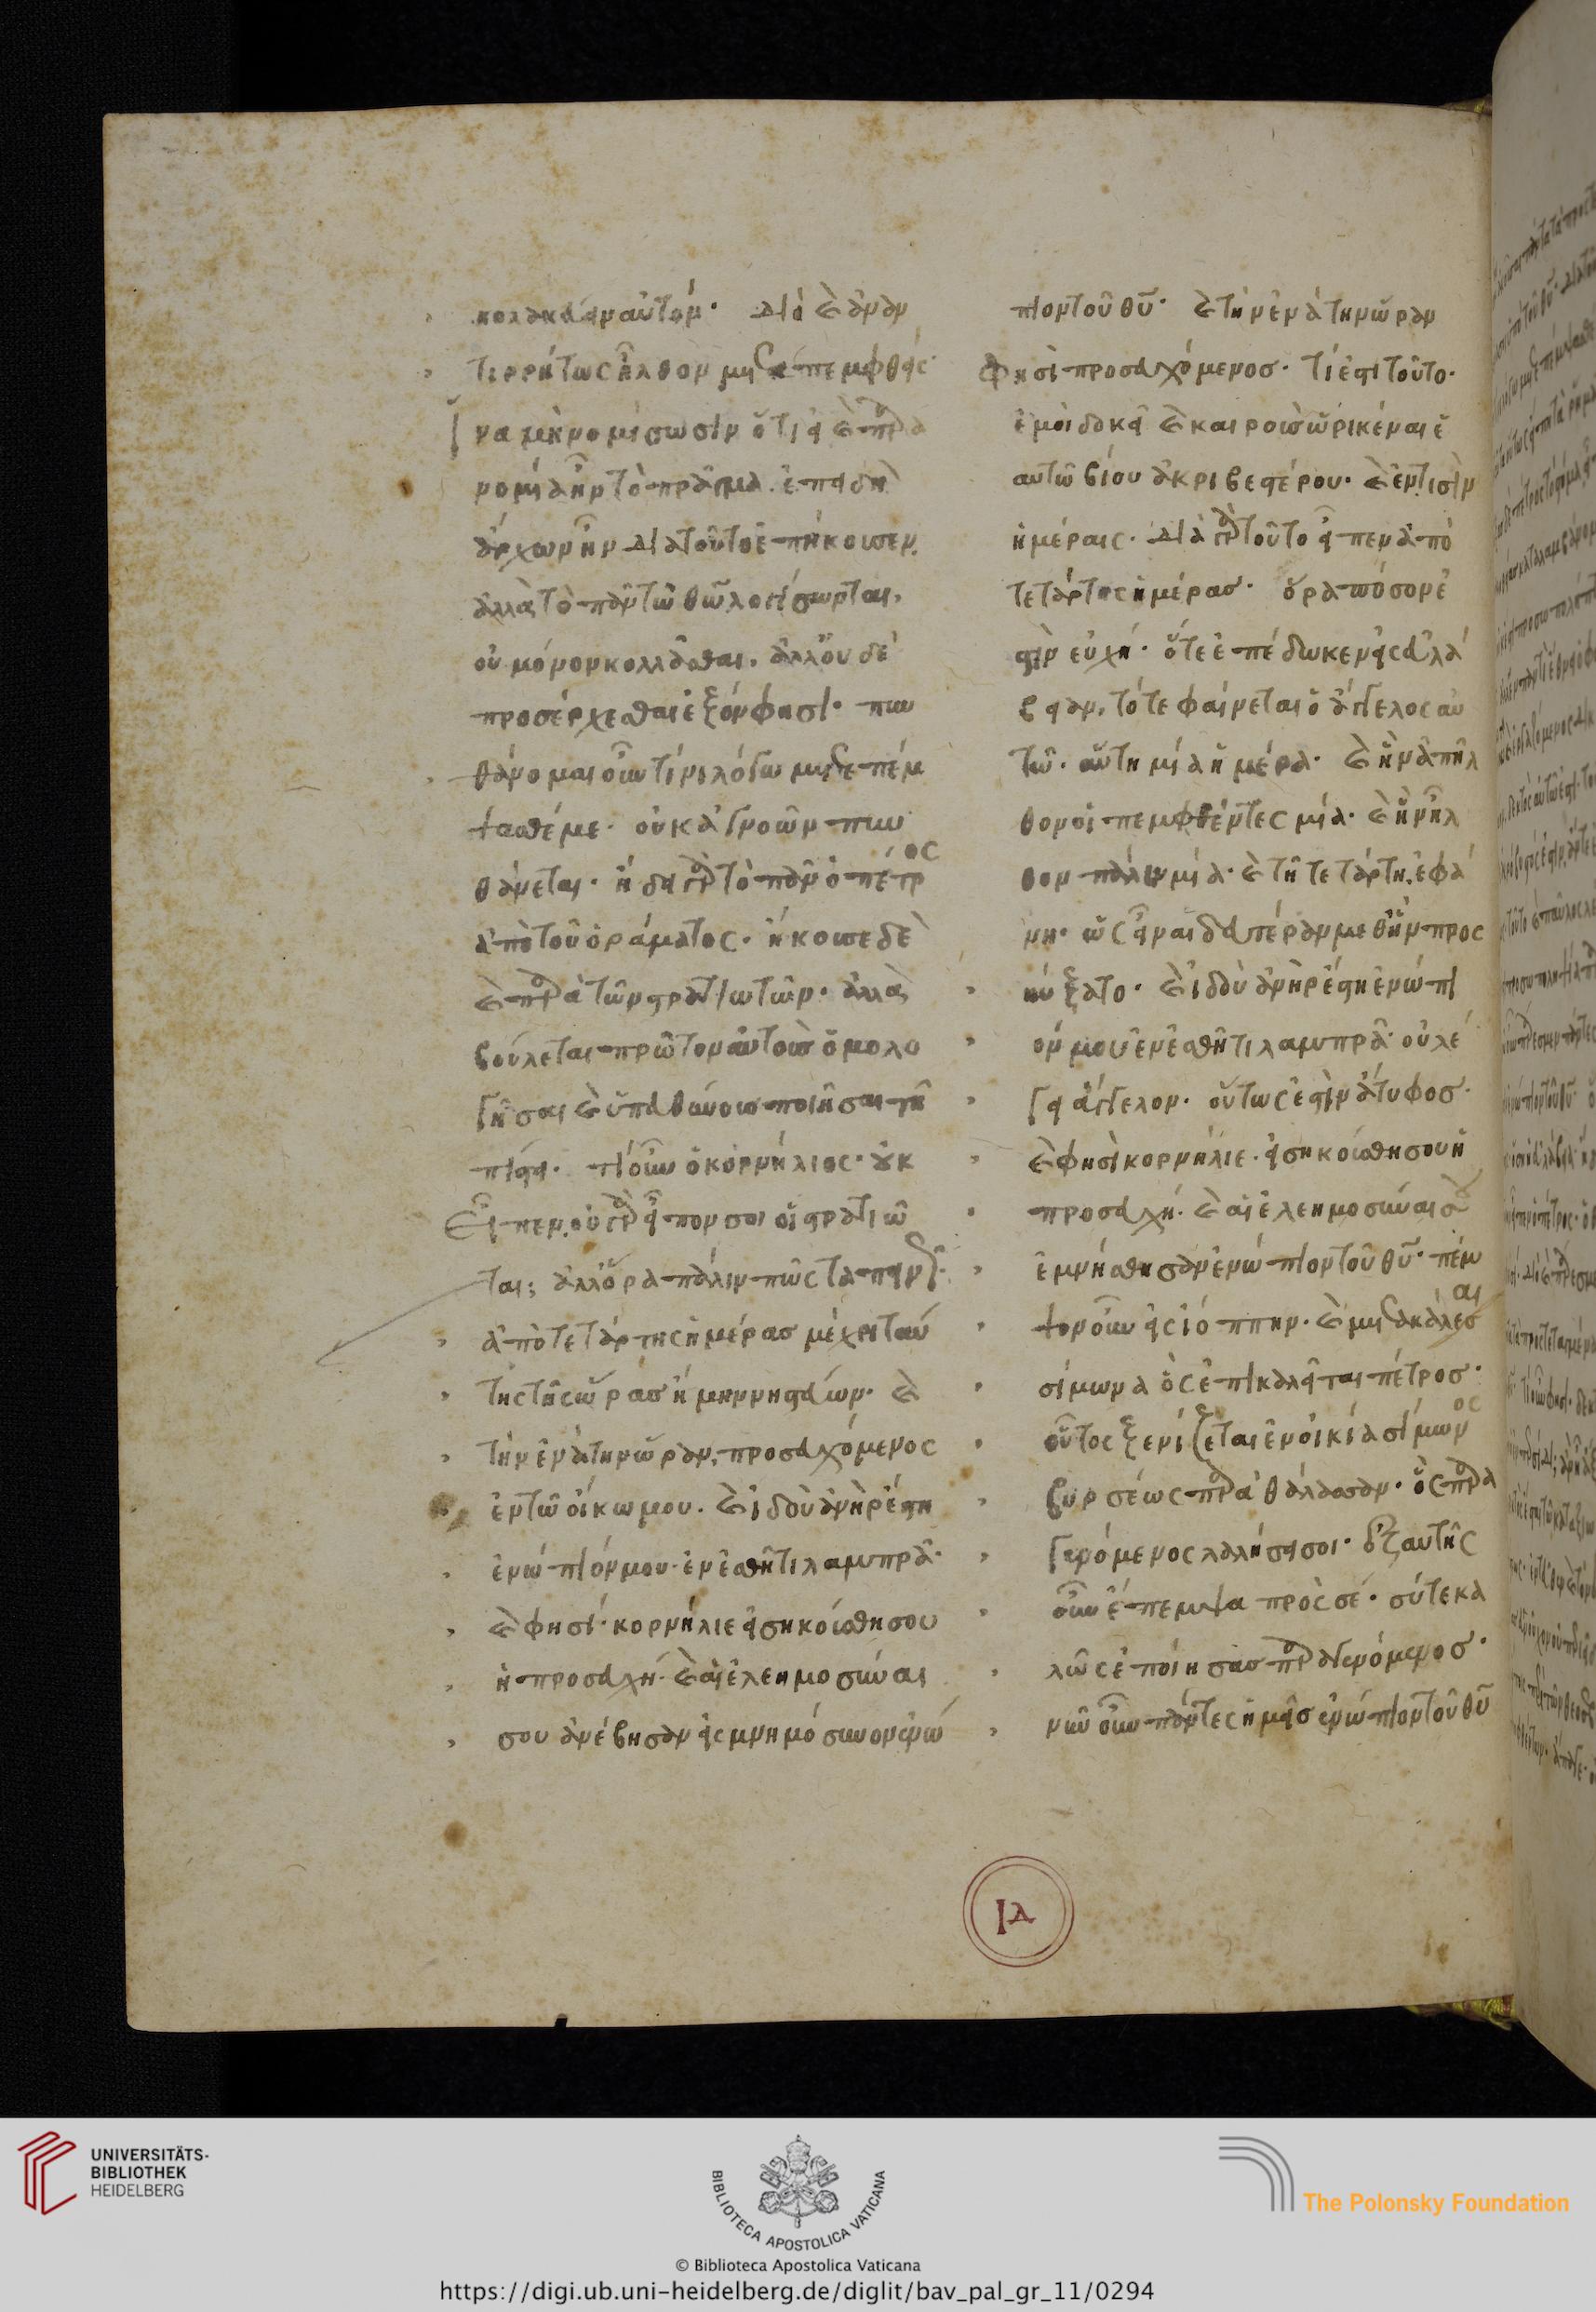 κολακεύειν αὐτόν· διὸ καὶ ἀναν
τιρρήτως ἦλθον μεταπεμφθείς·
ἵνα μὴ νομίσωσιν ὅτι εἰ καὶ παρα
νομία ἦν τὸ πρᾶγμα. ἐπειδὴ
ἄρχων ἦν διὰ τοῦτο ἐπήκουσεν.
ἀλλὰ τὸ πᾶν τῶ θῶ λογίσωνται.
οὐ μόνον κολλᾶσθαι. ἀλλ' οὐδὲ
προσέρχεσθαι ἐξόν φησι· πυν
θάνομαι οὖν τίνι λόγω μετεπέμ
ψασθέ με· οὐκ ἀγνοῶν πυν
θάνεται· ἤδη γὰρ τὸ πᾶν ὁ πέτρος
ἀπὸ τοῦ ὁράματος· ἤκουσε δὲ
καὶ παρὰ τῶν στρατιωτῶν· ἀλλὰ
βούλεται πρῶτον αὐτοὺς ὁμολο
γῆσαι καὶ ὑπευθύνους ποιῆσαι τῆ
πίστει· τί οὖν ὁ κορνήλιος· οὐκ
εἶπεν. οὐ γὰρ εἶπον σοι οἱ στρατιῶ
ται; ἀλλ' ὅρα πάλιν πῶς ταπεινῶς·
ἀπὸ τετάρτης ἡμέρας μέχρι ταύ
της τῆς ὥρας ἤμην νηστεύων· καὶ
τὴν ἐνάτην ὥραν, προσευχόμενος
ἐν τῶ οἴκω μου. καὶ ἰδοὺ ἀνὴρ ἔστη
ἐνώπιόν μου· ἐν ἐσθῆτι λαμπρᾶ·
καὶ φησί· κορνήλιε εἰσηκούσθη σου
ἡ προσευχή· καὶ αἱ ἐλεημοσύναι
σου ἀνέβησαν εἰς μνημόσυνον ἐνώ
πιον τοῦ θῦ· καὶ τὴν ἐνάτην ὥραν
φησὶ προσευχόμενος· τί ἐστι τοῦτο·
ἐμοὶ δοκεῖ καὶ καιροὺς ὡρικέναι ἑ
αυτῶ βίου ἀκριβεστέρου· καὶ ἔν τισιν
ἡμέραις· διὰ γὰρ τοῦτο εἶπεν ἀπὸ
τετάρτης ἡμέρας· ὅρα πόσον ἐ
στὶν εὐχή· ὅτε ἐπέδωκεν εἰς εὐλά
βειαν, τότε φαίνεται ὁ ἄγγελος αὐ
τῶ· αὕτη μία ἡμέρα· καὶ ἣν ἀπῆλ
θον οἱ πεμφθέντες μία· καὶ ἣν ἦλ
θον πάλιν μία· καὶ τῆ τετάρτη ἐφά
νη· ὡς εἶναι δευτέραν μεθ' ἣν προς
ηύξατο· καὶ ἰδοὺ ἀνὴρ ἔστη ἐνώπι
όν μου ἐν ἐσθῆτι λαμπρᾶ· οὐ λέ
γει ἄγγελον· οὕτως ἐστὶν ἄτυφος·
καὶ φησὶ κορνήλιε· εἰσηκούσθη σου ἡ
προσευχή· καὶ αἱ ἐλεημοσύναι σου
ἐμνήσθησαν ἐνώπιον τοῦ θῦ· πέμ
ψον οὖν εἰς ἰόππην· καὶ μετακάλεσαι
σίμωνα ὃς ἐπικαλεῖται πέτρος·
οὗτος ξενίζεται ἐν οἰκία σίμωνος
βυρσέως παρὰ θάλασσαν· ὃς παρα
γενόμενος λαλήσει σοι· ἐξαυτῆς
οὖν ἔπεμψα πρὸς σέ· σύ τε κα
λῶς ἐποίησας παραγενόμενος·
νῦν οὖν πάντες ἡμεῖς ἐνώπιον τοῦ θῦ
ια
UNIVERSITÄTS-
BIBLIOTHEK
HEIDELBERG
BIBLIOTECA APOSTOLICA VATICANA
© Biblioteca Apostolica Vaticana
The Polonsky Foundation
https://digi.ub.uni-heidelberg.de/diglit/bav_pal_gr_11/0294